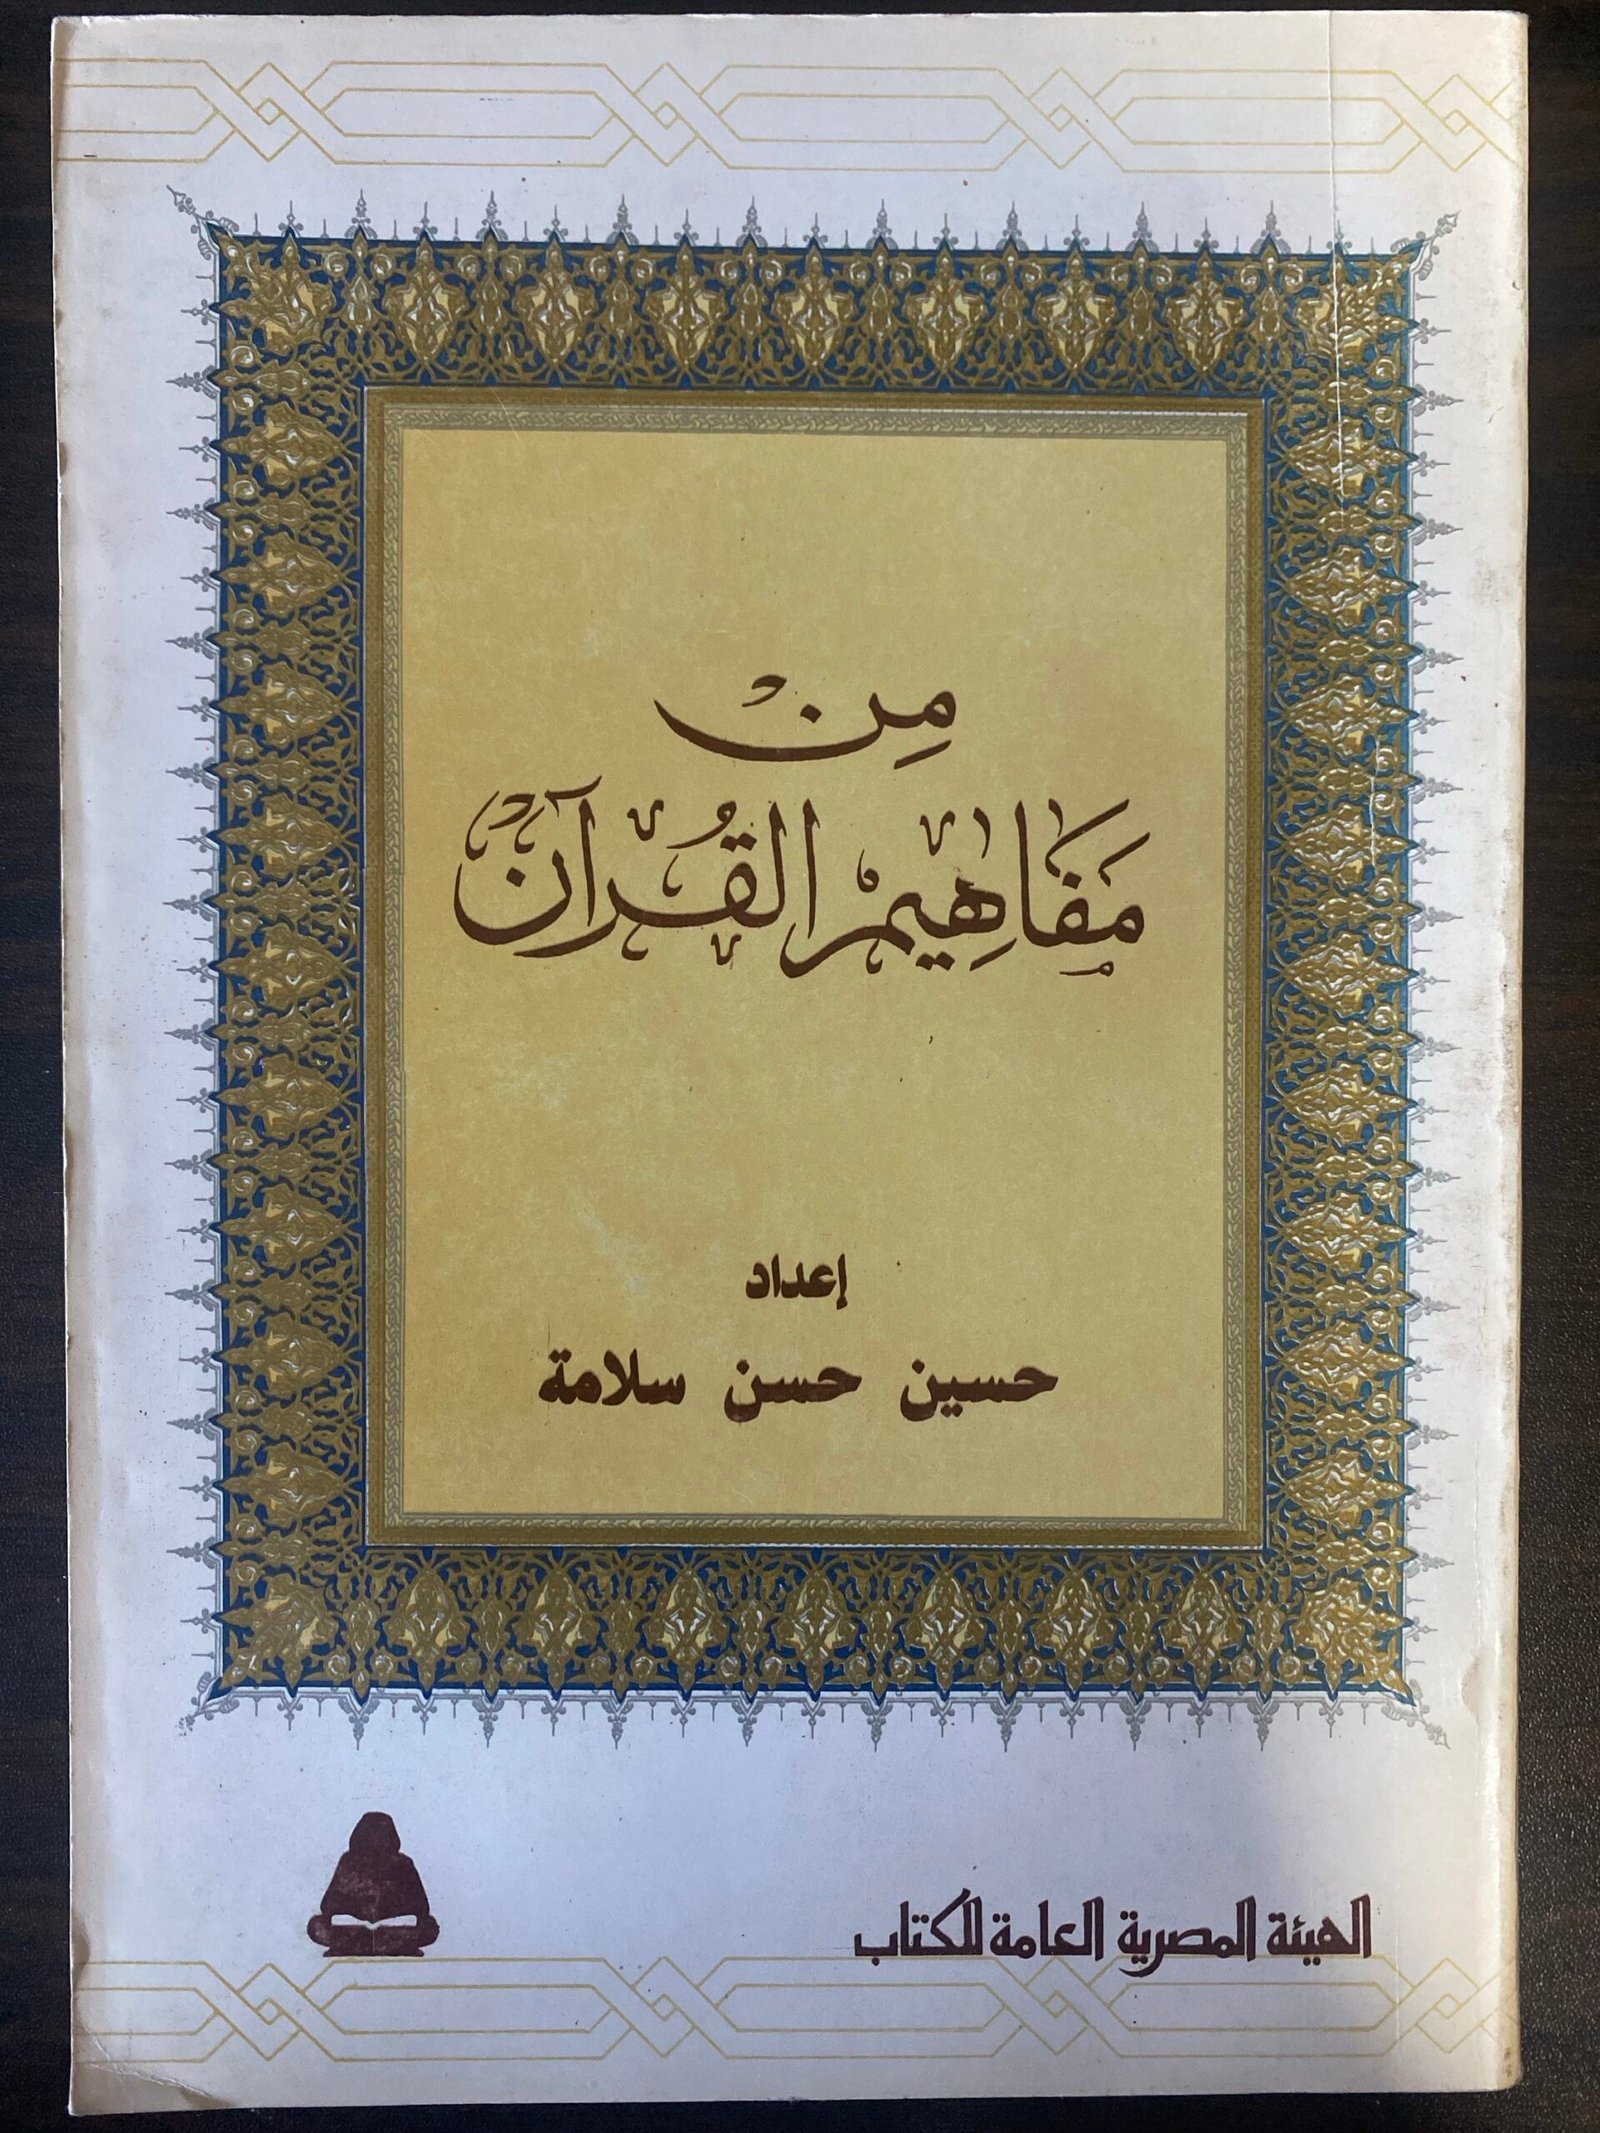 مِنْ
مَفَاهِيم القُرآنْ
إعداد
حسين حسن سلامة
الهيئة المصرية العامة للكتاب